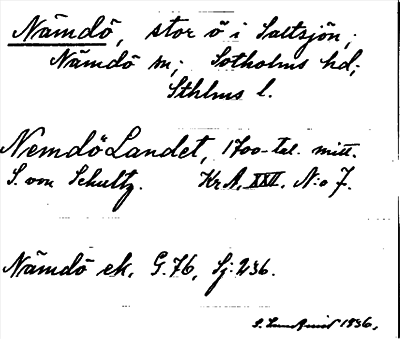 Nämdö, stor ö i Saltsjön,
Nämdö sn; Sotholms hd;
Sthlms l.
Nemdö Landet, 1700-tal. mitt.
S. von Schultz. KrA. XXII. N:o 7.
Nämdö ek. G.76, Sj:236.
S. Lundquist 1936.